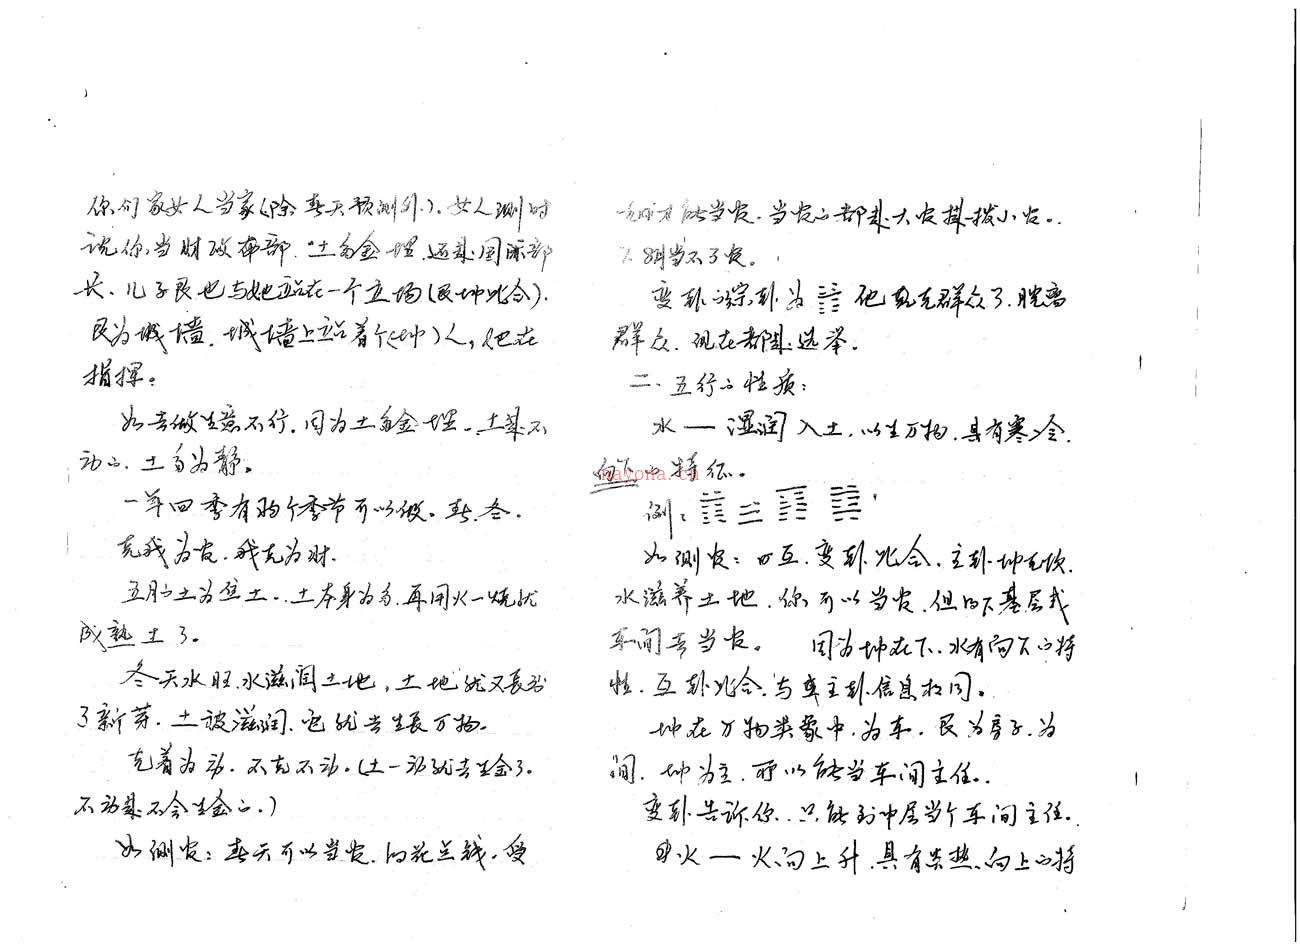 你们家女人当家(除春天预测外)。女人测时
说你当财政部部,土多金埋,还是国际部
长。儿子艮也与她站在一个立场(艮坤比合)。
艮为城墙,城墙上站着个(坤)人,他在
指挥。
如去做生意不行,因为土多金埋。土是不
动的,土多为静。
一年四季有两个季节可以做。春、冬。
克我为官,我克为财.
五月的土为焦土,土本身为多,再用火一烧就
成熟土了。
冬天水旺,水滋润土地,土地就又长出
了新芽,土被滋润,它就去生长万物。
克着为动,不克不动。(土一动就去生金了。
不动是不会生金的。)
如测官:春天可以当官,的花点钱,受
克时才能当官,当官的都是大官提拔小官。
不明当不了官。
变卦的综卦为 他克群众了,脱离
群众,现在都是选举。
二、五行的性质:
水 — 湿润入土,以生万物,具有寒冷,
向下的特征。
nayona.cn
例:
如测官:互、变卦比合,主卦坤克坎,
水滋养土地,你可以当官,但的下基层或
车间去当官。 因为坤在下,水有向下的特
性,互卦比合,与主卦信息相同。
坤在万物类象中,为车,艮为房子,为
间,坤为主,所以能当车间主任。
变卦告诉你,只能到中层当个车间主任。
火 — 火向上升,具有炎热,向上的特